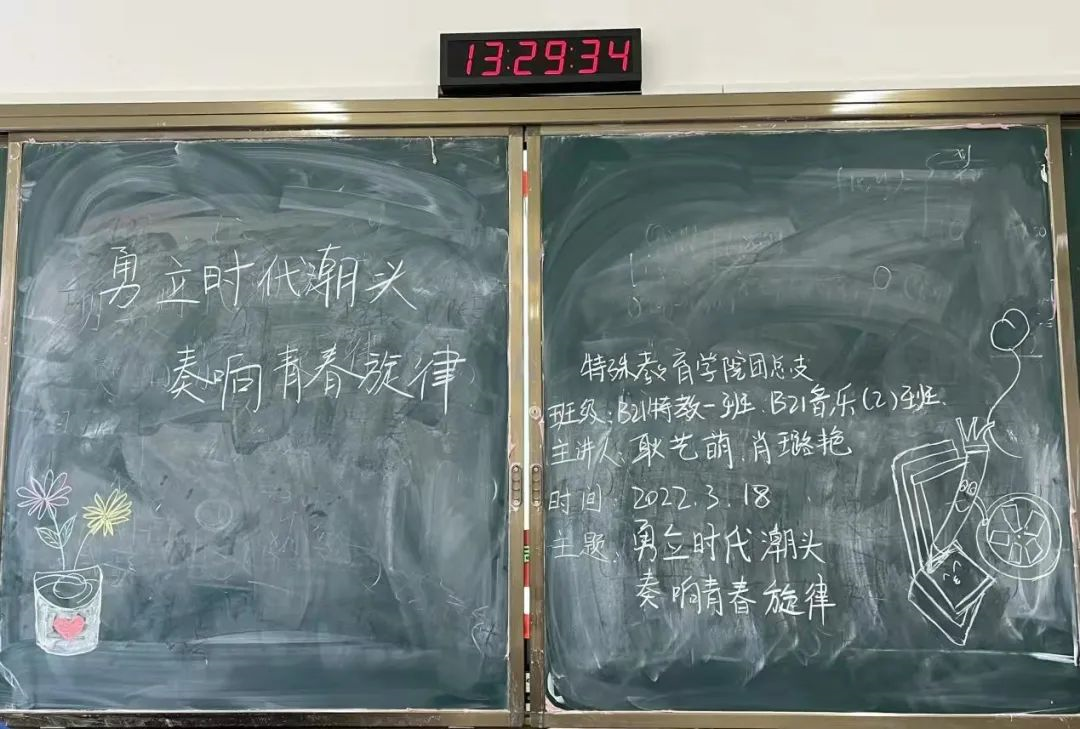 13:29:34
勇立时代潮头
奏响青春旋律
特殊教育学院团总支
班级:B21特教一班.B21音乐(2)班.
主讲人:耿艺萌.肖璐艳
时间:2022.3.18
主题:勇立时代潮头
奏响青春旋律